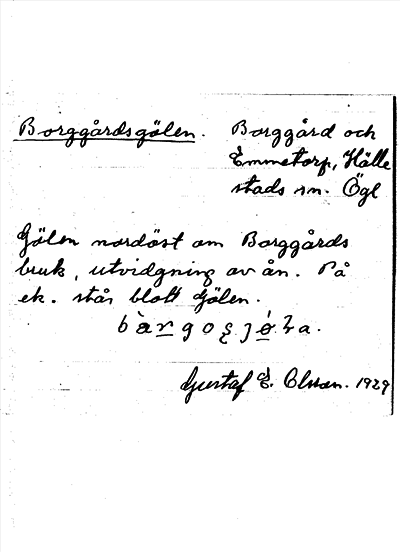 Borggårdsgölen. Borggård och
Emmetorp, Hälle
stads sn. Ögl
Gölen nordöst om Borggårds
bruk, utvidgning av ån. På
ek. står blott Gölen.
Gustaf E. Olsson. 1929